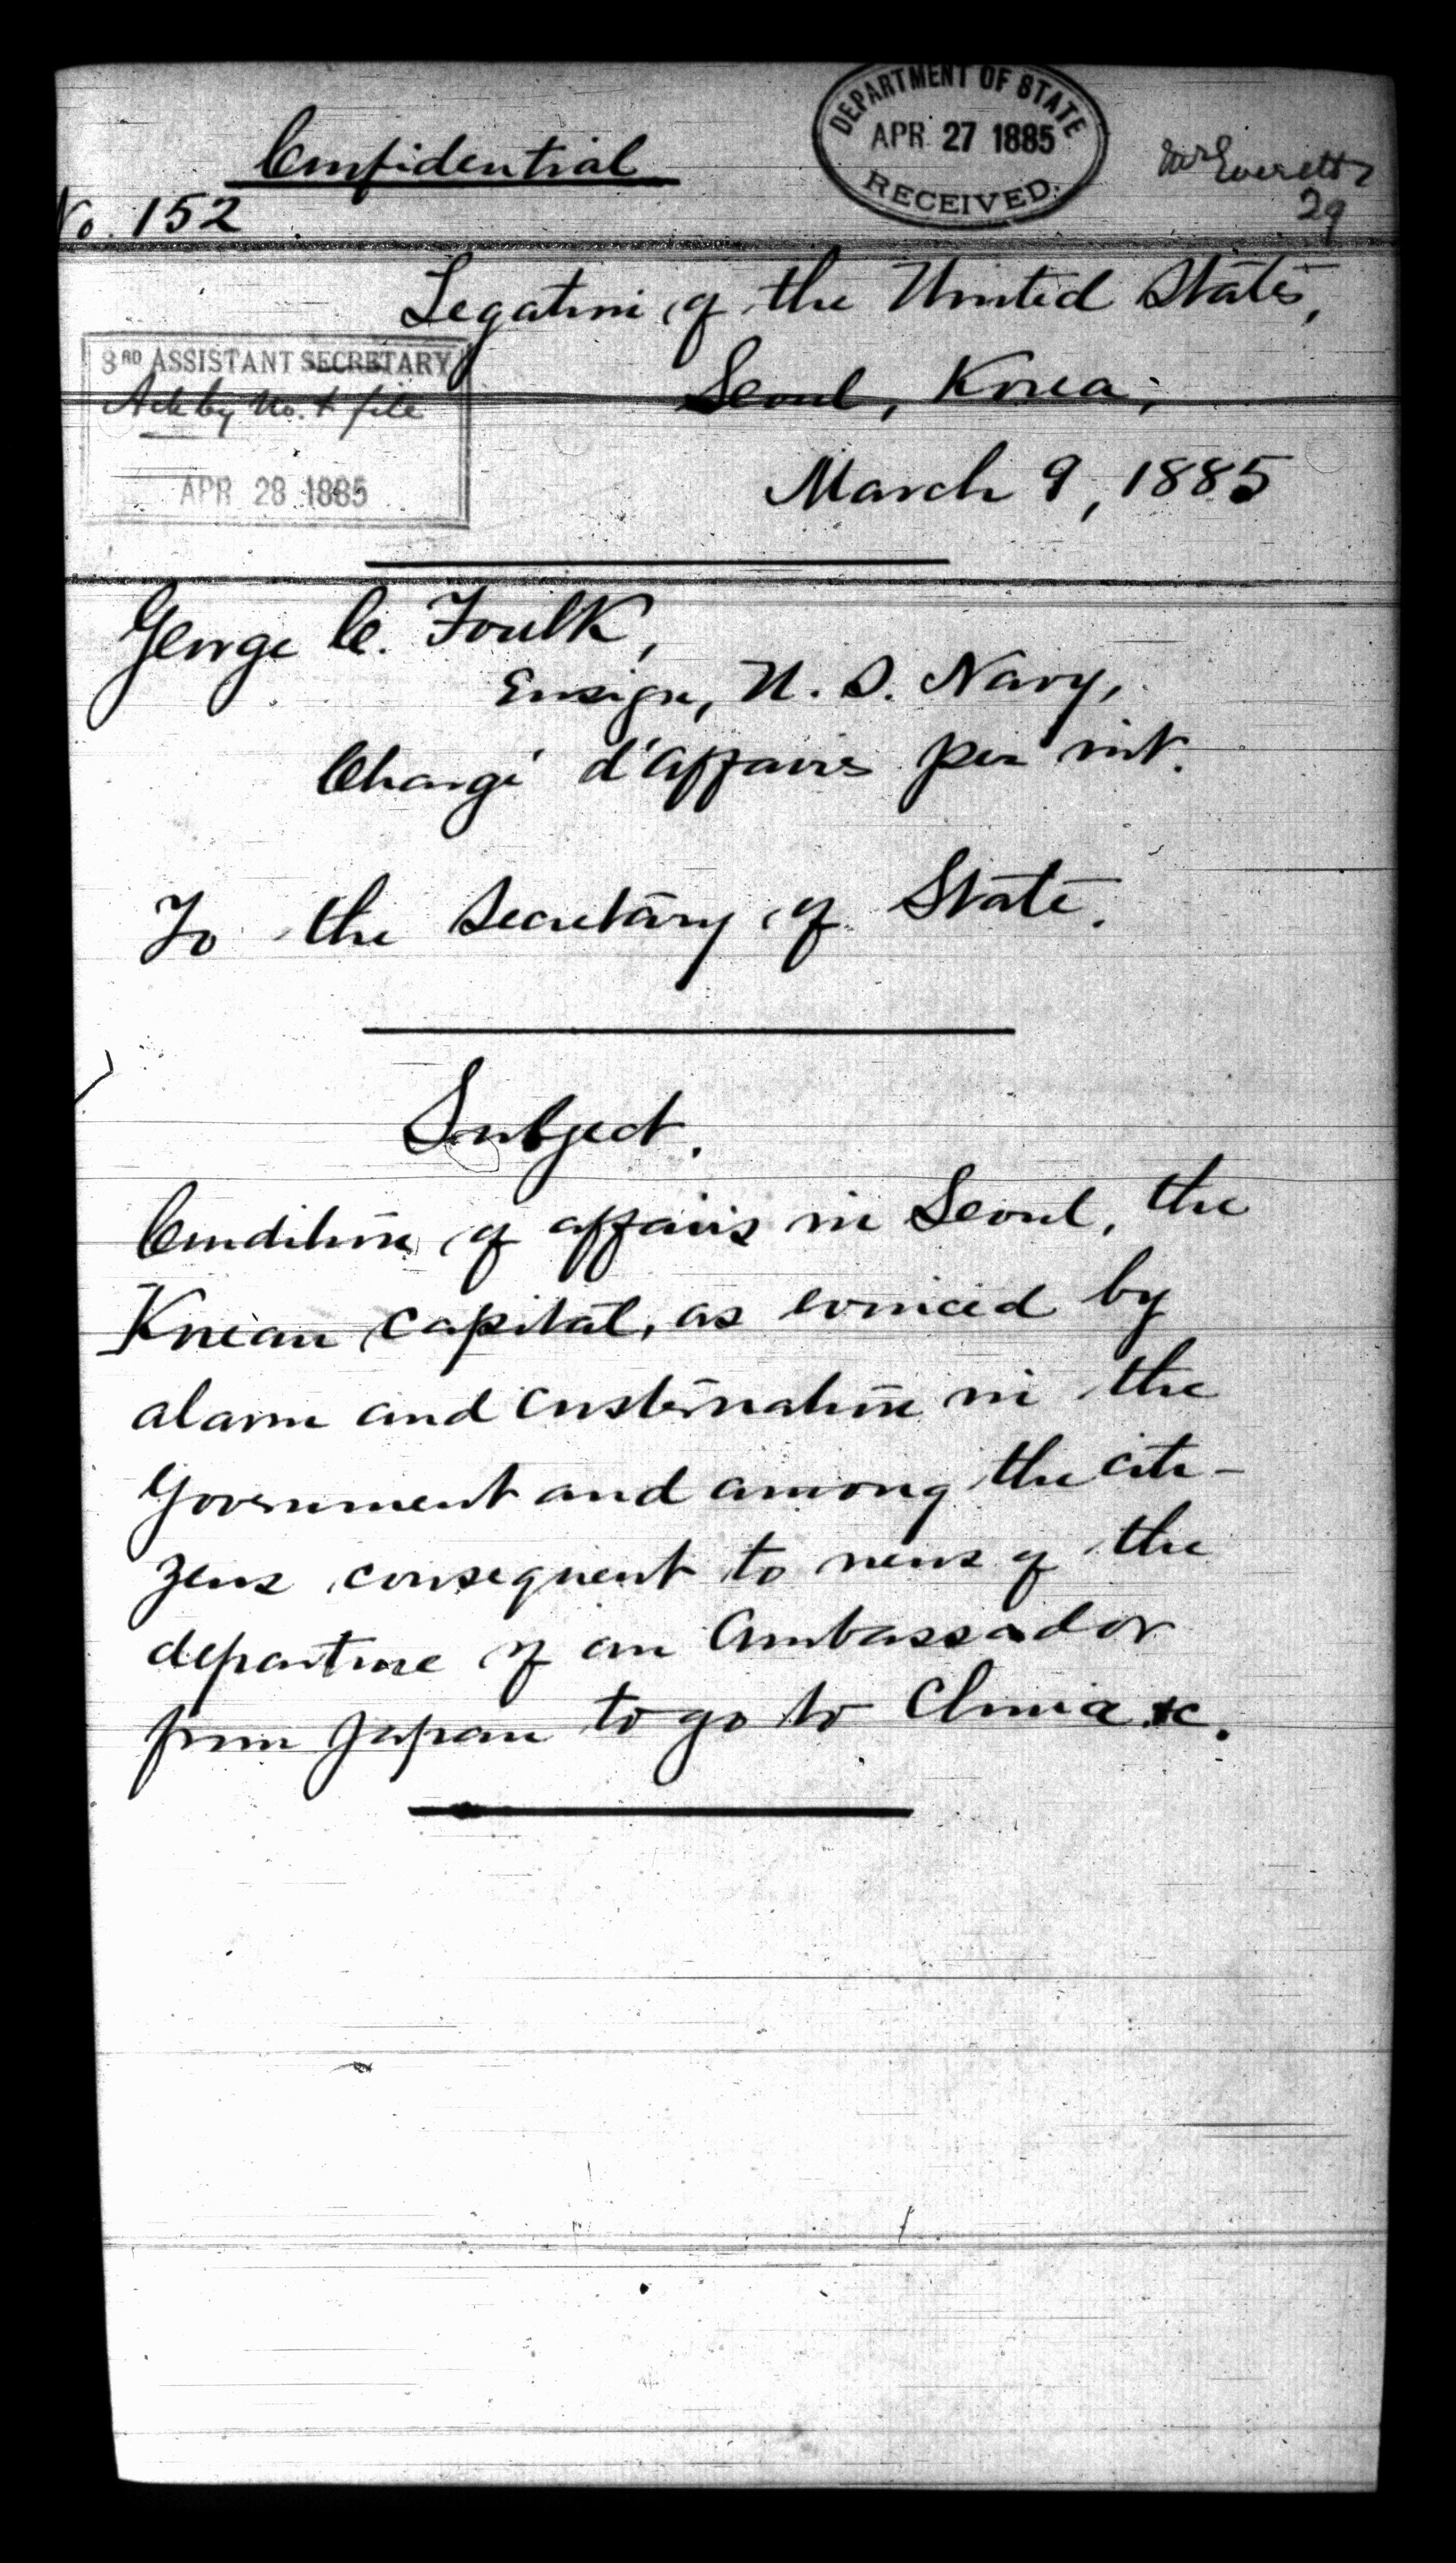 Confidential
DEPARTMENT OF STATE
APR 27 1885
RECEIVED.
Mr Everett
29
No. 152
Legation of the United States,
Seoul, Korea;
March 9, 1885
3RD ASSISTANT SECRETARY
Ack by No. & file
APR 28 1885
George C. Foulk,
Ensign, U. S. Navy,
Chargé d'affaires per int.
To the Secretary of State.
Subject.
Condition of affairs in Seoul, the
Korean capital, as evinced by
alarm and consternation in the
Government and among the citi-
zens consequent to news of the
departure of an Ambassador
from Japan to go to China &c.